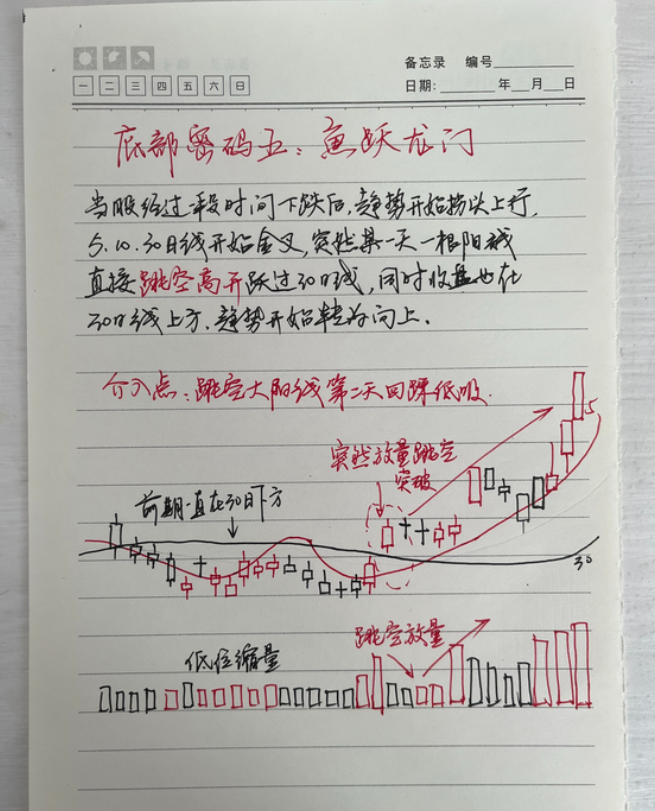 备忘录 编号
一 二 三 四 五 六 日
日期: 年 月 日
底部密码五:鱼跃龙门
当股经过一段时间下跌后,趋势开始拐头上行,
5.10.30日线开始金叉,突然某一天一根阳线
直接跳空高开跃过30日线,同时收盘也在
30日线上方.趋势开始转为向上.
介入点:跳空大阳线第二天回踩低吸.
突然放量跳空
突破
前期一直在30日下方
5
30
跳空放量
低位缩量